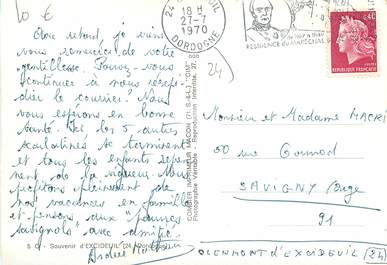 10 €
24 EXCIDEUIL
18 H
27-7
1970
DORDOGNE
RESIDENCE DU MARECHAL
0,40
REPUBLIQUE FRANÇAISE
24
Avec retard, je viens
vous remercier de votre
gentillesse. Pouvez-vous
continuer à nous réexpé-
dier le courrier. Nous
vous espérons en bonne
santé. Ici, les 5 autres
scarlatines se terminent
et tous les enfants
de la vigueur. Nous
profitons pleinement de
nos vacances en famille
et pensons aux "pauvres
savignols" avec amitié.
COMBIER IMPRIMEUR MACON (71 S.-&-L.) "CIM"
Photographie Véritable - Reproduction Interdite
Monsieur et Madame MACRI
50 rue Gounod
SAVIGNY /Orge
91
Souvenir d'EXCIDEUIL (24 Dordogne)
CLERMONT d'EXCIDEUIL (24)